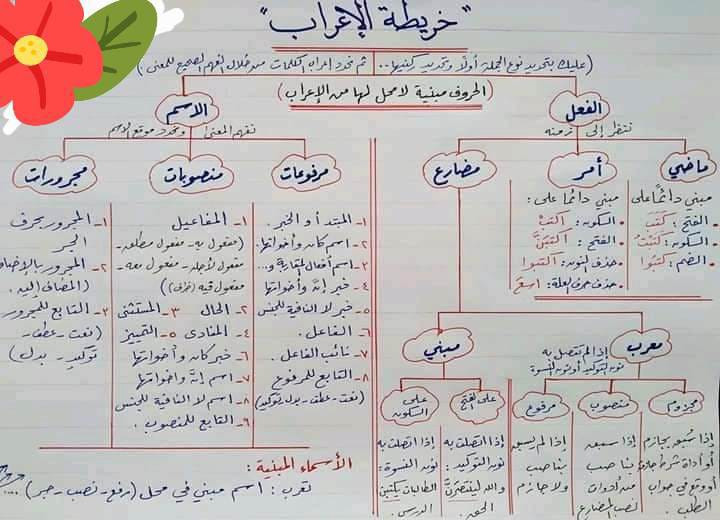 "خريطة الإعراب"
(عليك بتحديد نوع الجملة أولاً وتحديد ركنيها... ثم تحدد إعراب الكلمات من خلال الفهم الصحيح للمعنى.)
(الحروف مبنية لا محل لها من الإعراب)
الفعل
ننظر إلى زمنه
ماضي
مبني دائماً على
• الفتح: كَتَبَ
• السكون: كَتَبْتُ
• الضم: كَتَبُوا
أمر
مبني دائما على:
• السكون: اكتبْ
• الفتح: اكتبَنَّ
• حذف النون: اكتبوا
• حذف حرف العلة: اسعَ
مضارع
معرب
إذا لم تتصل به
نون التوكيد أو نون النسوة
مجزوم
إذا سُبق بجازم
أو أداة شرط جازمة
أو وقع في جواب
الطلب.
منصوب
إذا سبقه
ناصب
من أدوات
نصب المضارع
مرفوع
إذا لم يسبق
بناصب
ولا جازم
مبني
على الفتح
إذا اتصلت به
نون التوكيد:
والله لينتصرَنَّ
الحق.
على
السكون
إذا اتصلت به
نون النسوة:
الطالبات يكتبْنَ
الدرس.
الاسم
نفهم المعنى ونحدد موقع الاسم
مرفوعات
١- المبتدأ والخبر.
٢- اسم كان وأخواتها.
٣- اسم أفعال المقاربة و...
٤- خبر إنَّ وأخواتها
٥- خبر لا النافية للجنس
٦- الفاعل.
٧- نائب الفاعل.
٨- التابع للمرفوع
(نعت - عطف - بدل - توكيد)
منصوبات
١- المفاعيل
(مفعول به - مفعول مطلق -
مفعول لأجله - مفعول معه -
مفعول فيه (ظرف)
٢- الحال ٣- المستثنى
٤- المنادى ٥- التمييز
٦- خبر كان وأخواتها
٧- اسم إنَّ وأخواتها
٨- اسم لا النافية للجنس
٩- التابع للمنصوب.
مجرورات
١- المجرور بحرف
الجر
٢- المجرور بالإضافة
(المضاف إليه).
٣- التابع للمجرور
(نعت - عطف -
توكيد - بدل)
الأسماء المبنية:
تعرب: اسم مبني في محل (رفع - نصب - جر)....